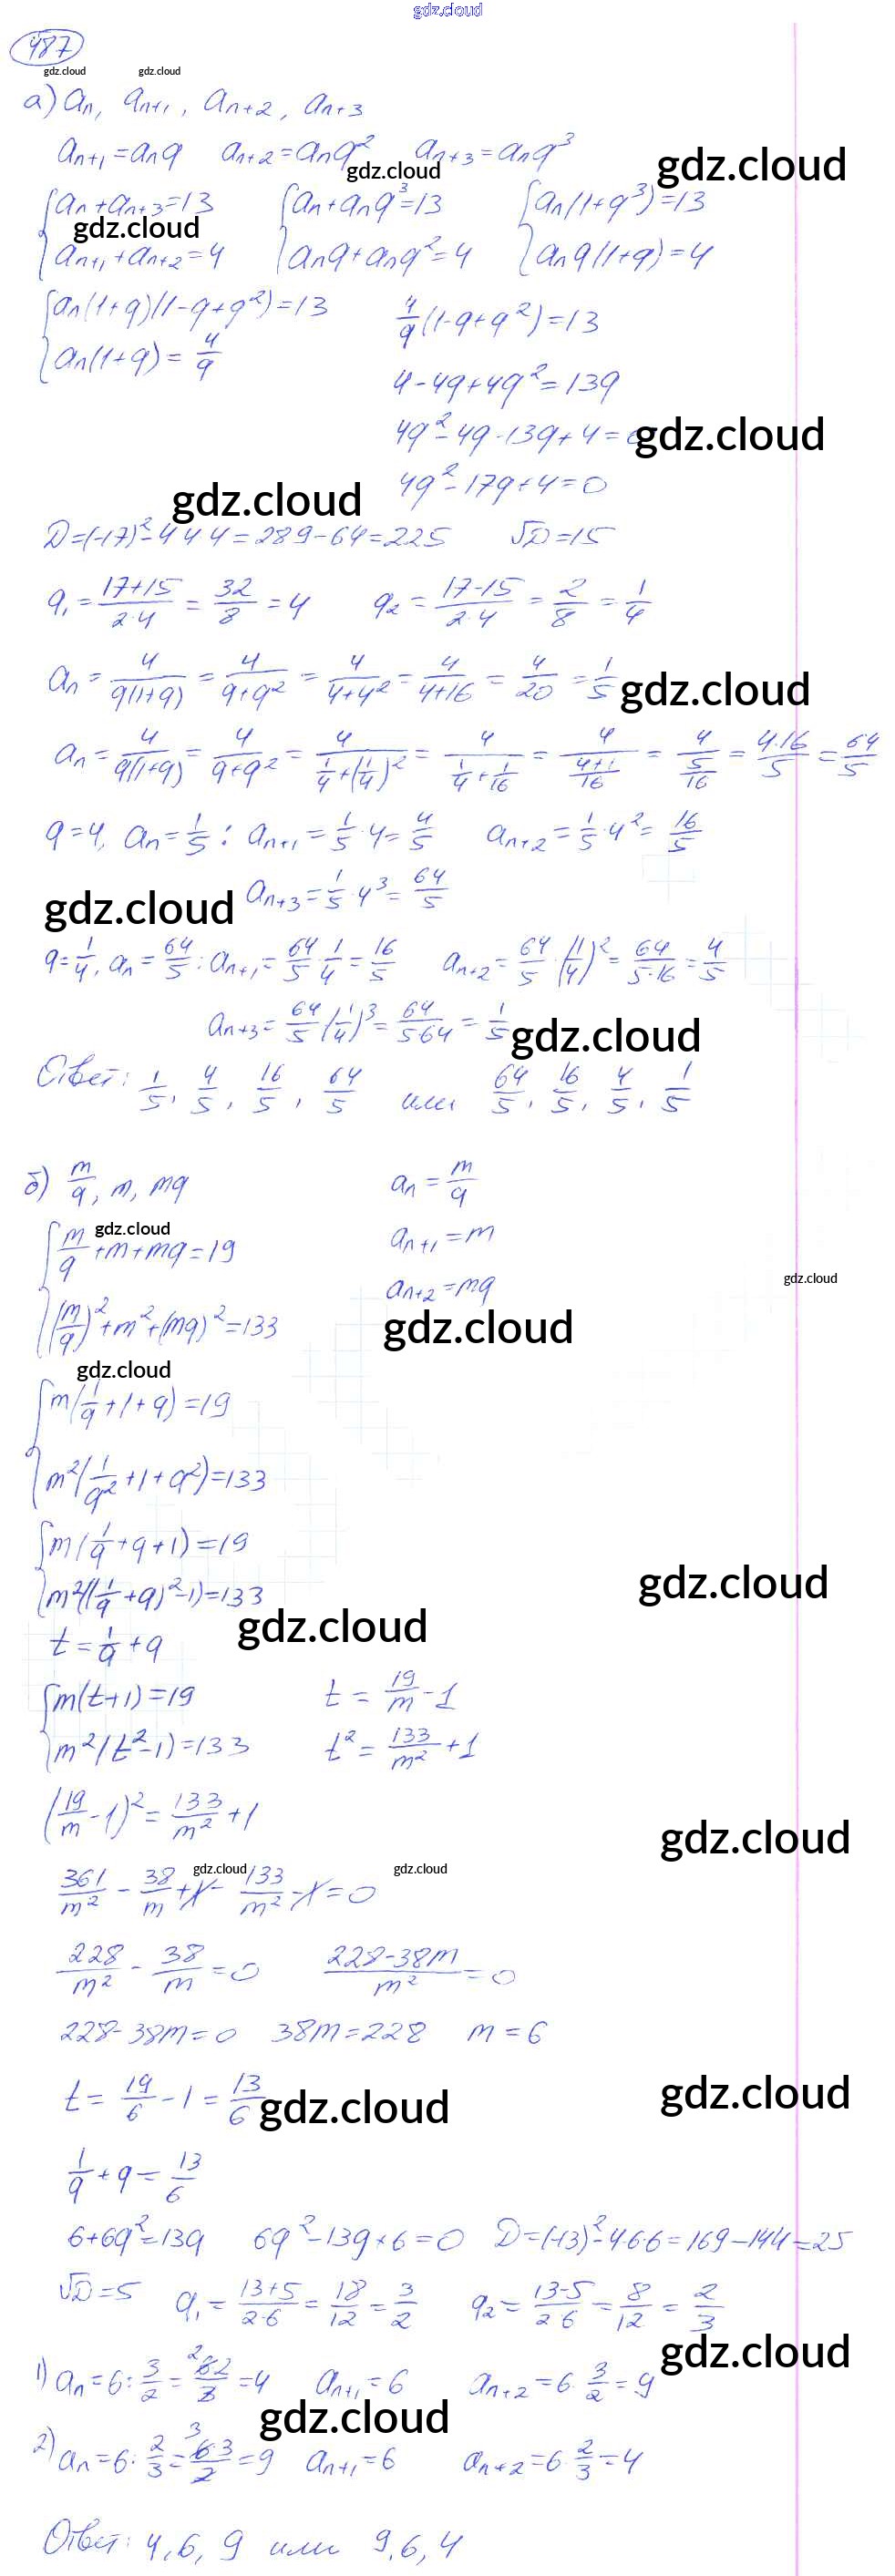 gdz.cloud
487
gdz.cloud gdz.cloud
а) aₙ, aₙ₊₁, aₙ₊₂, aₙ₊₃
aₙ₊₁=aₙq aₙ₊₂=aₙq² aₙ₊₃=aₙq³
gdz.cloud gdz.cloud
{aₙ+aₙ₊₃=13 {aₙ+aₙq³=13 {aₙ(1+q³)=13
gdz.cloud
{aₙ₊₁+aₙ₊₂=4 {aₙq+aₙq²=4 {aₙq(1+q)=4
{aₙ(1+q)(1-q+q²)=13 4/q(1-q+q²)=13
{aₙ(1+q)=4/q
4-4q+4q²=13q
4q²-4q-13q+4= gdz.cloud
4q²-17q+4=0
gdz.cloud
D=(-17)²-4·4·4=289-64=225 √D=15
q₁=(17+15)/(2·4)=32/8=4 q₂=(17-15)/(2·4)=2/8=1/4
aₙ=4/(q(1+q))=4/(q+q²)=4/(4+4²)=4/(4+16)=4/20=1/5 gdz.cloud
aₙ=4/(q(1+q))=4/(q+q²)=4/(1/4+(1/4)²)=4/(1/4+1/16)=4/((4+1)/16)=4/(5/16)=4·16/5=64/5
q=4, aₙ=1/5: aₙ₊₁=1/5·4=4/5 aₙ₊₂=1/5·4²=16/5
gdz.cloud aₙ₊₃=1/5·4³=64/5
q=1/4, aₙ=64/5: aₙ₊₁=64/5·1/4=16/5 aₙ₊₂=64/5·(1/4)²=64/(5·16)=4/5
aₙ₊₃=64/5(1/4)³=64/(5·64)=1/5 gdz.cloud
Ответ: 1/5, 4/5, 16/5, 64/5 или 64/5, 16/5, 4/5, 1/5
б) m/q, m, mq aₙ=m/q
gdz.cloud
{m/q+m+mq=19 aₙ₊₁=m
gdz.cloud
aₙ₊₂=mq
{(m/q)²+m²+(mq)²=133 gdz.cloud
gdz.cloud
{m(1/q+1+q)=19
{m²(1/q²+1+q²)=133
{m(1/q+q+1)=19
{m²((1/q+q)²-1)=133 gdz.cloud
gdz.cloud
t=1/q+q
{m(t+1)=19 t=19/m-1
{m²(t²-1)=133 t²=133/m²+1
(19/m-1)²=133/m²+1 gdz.cloud
gdz.cloud gdz.cloud
361/m²-38/m+1-133/m²-1=0
228/m²-38/m=0 (228-38m)/m²=0
228-38m=0 38m=228 m=6
t=19/6-1=13/6 gdz.cloud gdz.cloud
1/q+q=13/6
6+6q²=13q 6q²-13q+6=0 D=(-13)²-4·6·6=169-144=25
√D=5 q₁=(13+5)/(2·6)=18/12=3/2 q₂=(13-5)/(2·6)=8/12=2/3
gdz.cloud
1) aₙ=6:3/2=²6·2/3=4 aₙ₊₁=6 aₙ₊₂=6·3/2=9
gdz.cloud
2) aₙ=6:2/3=³6·3/2=9 aₙ₊₁=6 aₙ₊₂=6·2/3=4
Ответ: 4, 6, 9 или 9, 6, 4